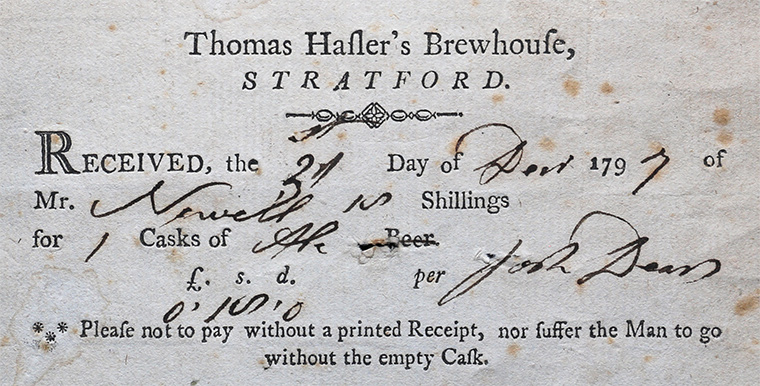 Thomas Haſler's Brewhouſe,
STRATFORD.
RECEIVED, the Day of Decr 1797 of
Mr. Newell 18 Shillings
for 1 Casks of Ale Beer.
£. s. d. per Josh Dean
0 " 18 " 0
⁂ Pleaſe not to pay without a printed Receipt, nor ſuffer the Man to go
without the empty Caſk.